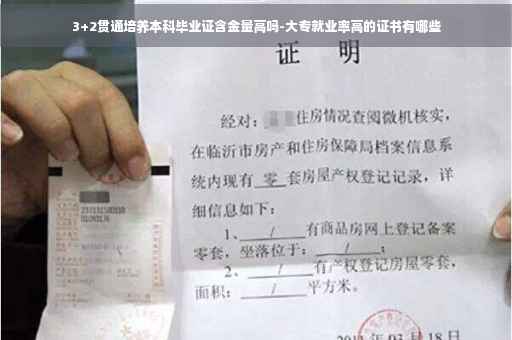 3+2贯通培养本科毕业证含金量高吗-大专就业率高的证书有哪些
证 明
经对：住房情况查阅微机核实，
在临沂市房产和住房保障局档案信息系
统内现有 零 套房屋产权登记记录，详
细信息如下：
1、 / 有商品房网上登记备案
零套，坐落位于： / ；
2、 / 有产权登记房屋零套，
面积： / 平方米。